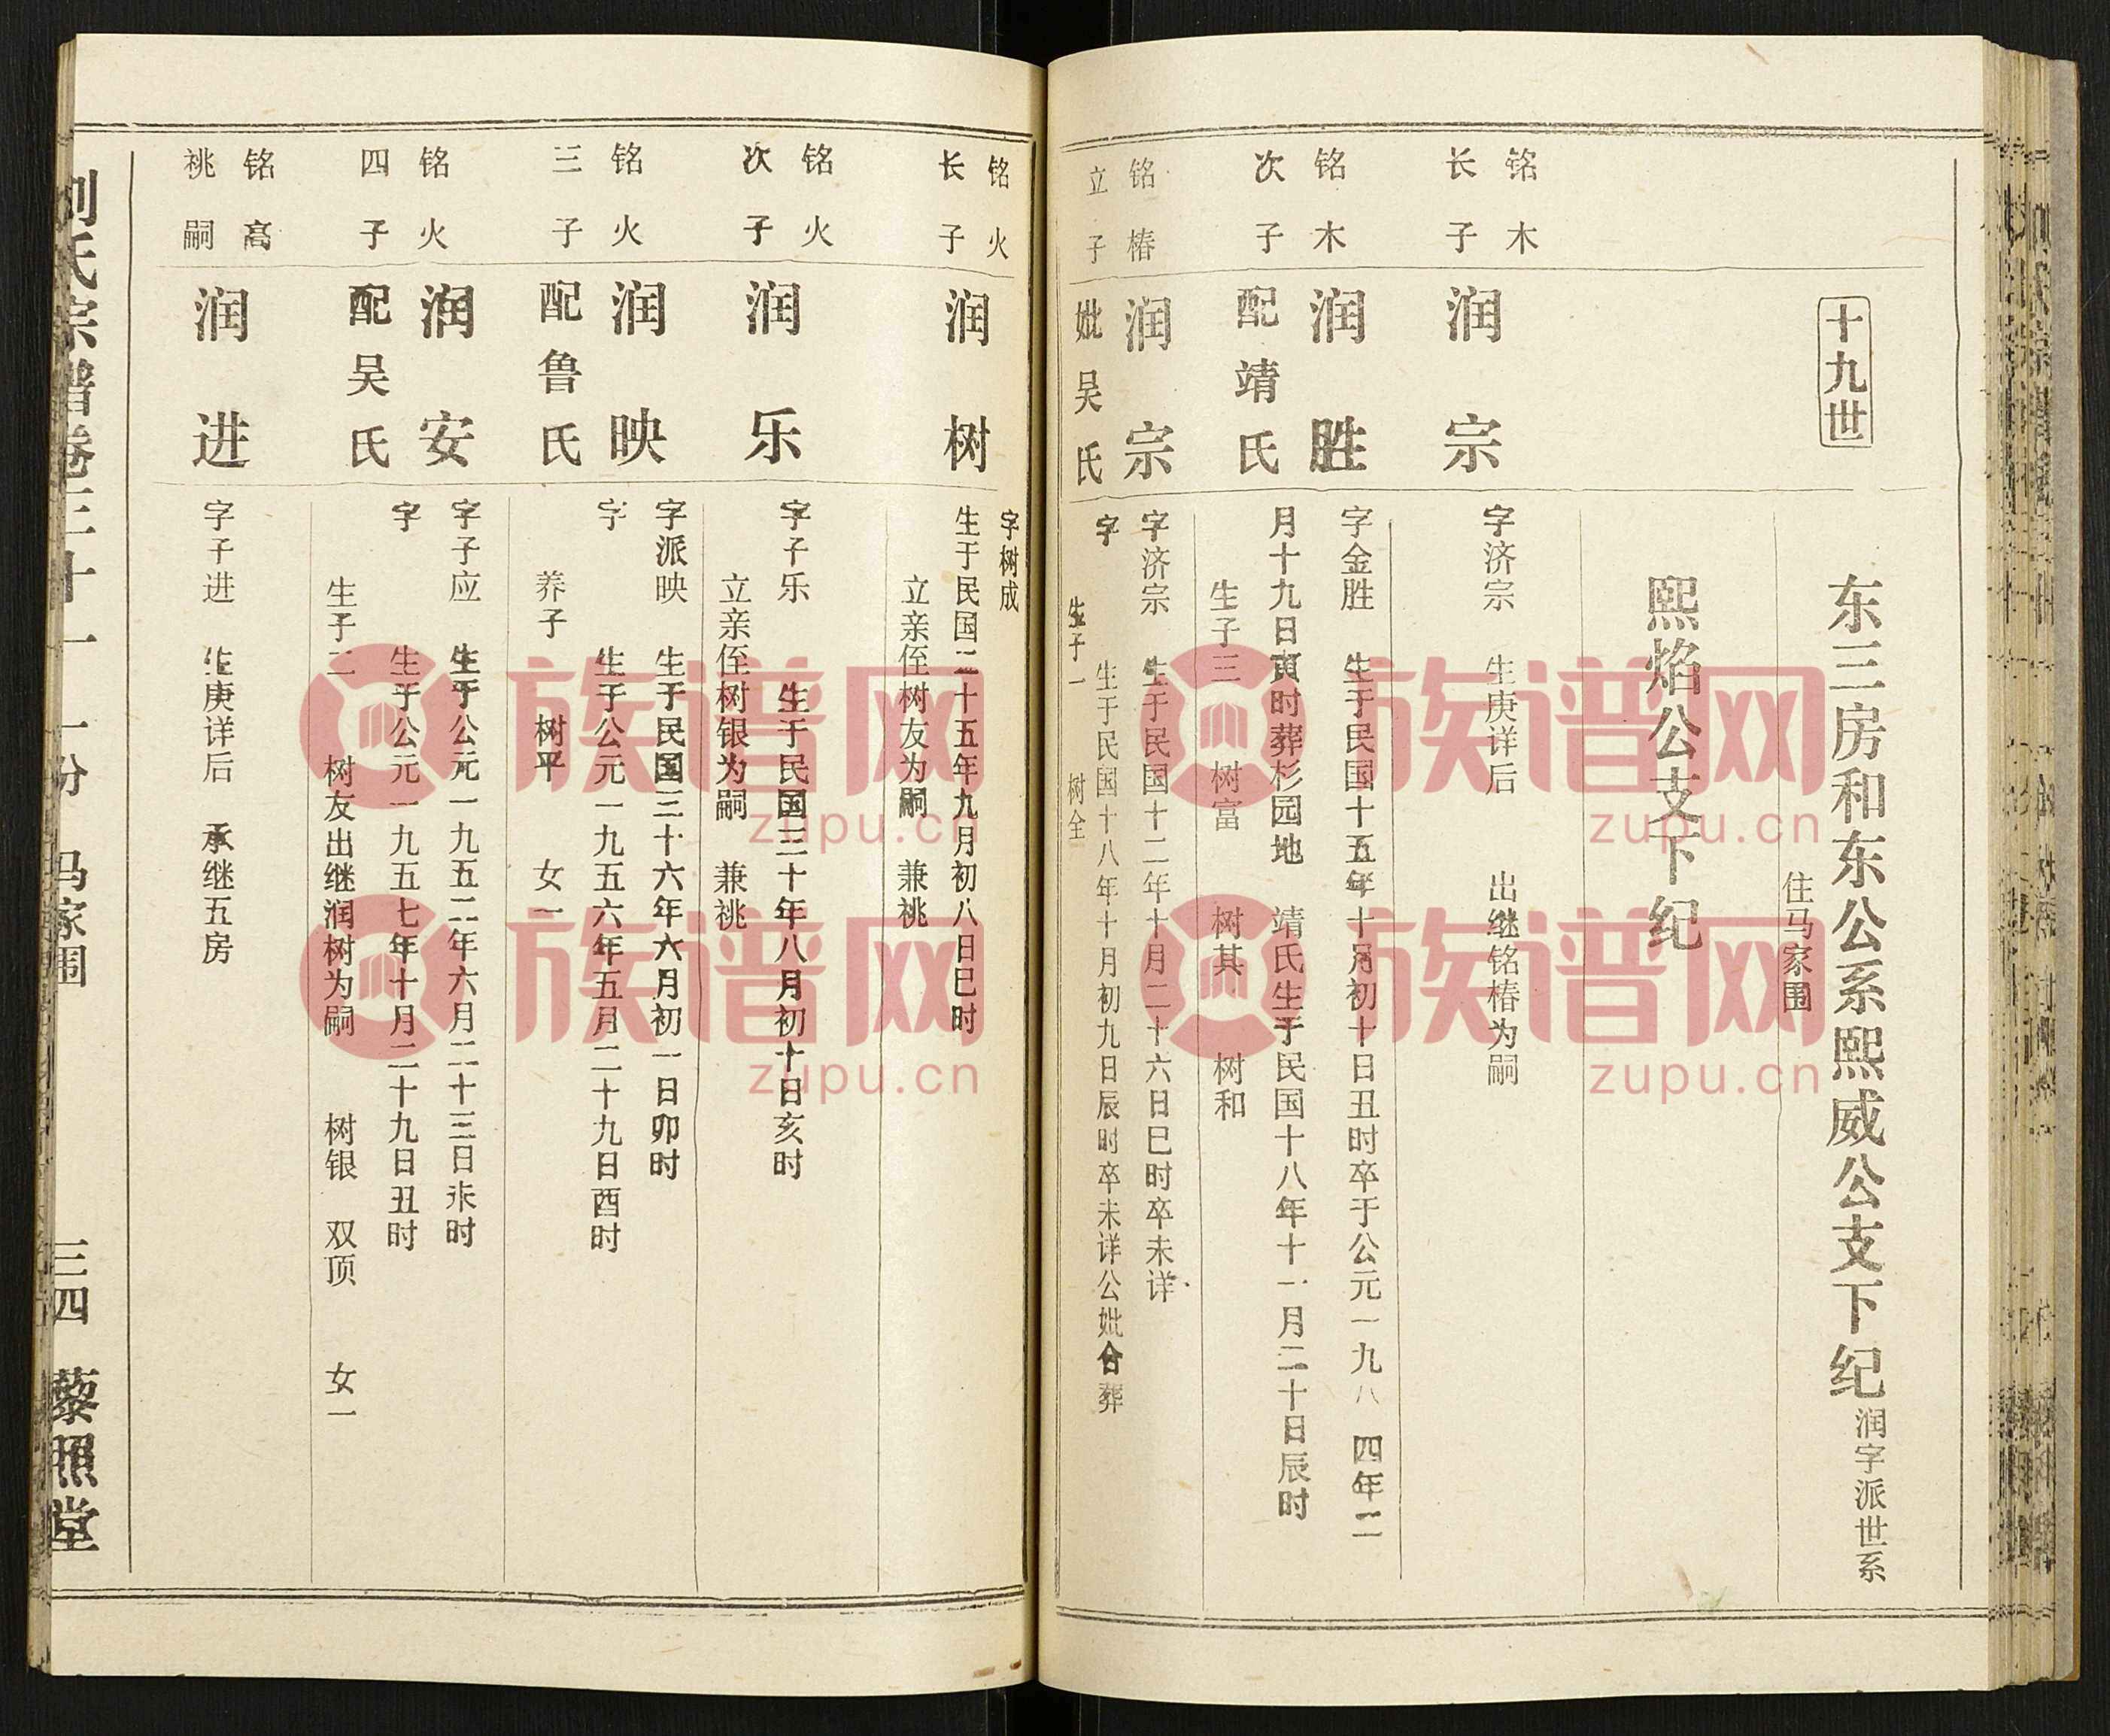 东三房和东公系熙威公支下纪
润字派世系
十九世
住马家围
熙焰公支下纪
铭木
长子
润宗
字济宗 生庚详后 出继铭椿为嗣
铭木
次子
润胜
配靖氏
字金胜 生于民国十五年十月初十日丑时卒于公元一九八四年二
月十九日寅时葬杉园地 靖氏生于民国十八年十一月二十日辰时
生子三 树富 树其 树和
铭椿
立子
润宗
妣吴氏
字济宗 生于民国十二年十月二十六日巳时卒未详
字 生于民国十八年十月初九日辰时卒未详公妣合葬
生子一 树全
铭火
长子
润树
字树成
生于民国二十五年九月初八日巳时
立亲侄树友为嗣 兼祧
铭火
次子
润乐
字子乐 生于民国三十年八月初十日亥时
立亲侄树银为嗣 兼祧
铭火
三子
润映
配鲁氏
字派映 生于民国三十六年六月初一日卯时
字 生于公元一九五六年五月二十九日酉时
养子 树平 女一
铭火
四子
润安
配吴氏
字子应 生于公元一九五二年六月二十三日未时
字 生于公元一九五七年十月二十九日丑时
生子二 树友出继润树为嗣 树银 双顶 女一
铭高
祧嗣
润进
字子进 生庚详后 承继五房
刘氏宗谱卷三十一 一分 马家围 三四 藜照堂
族谱网
zupu.cn
族谱网
zupu.cn
族谱网
zupu.cn
族谱网
zupu.cn